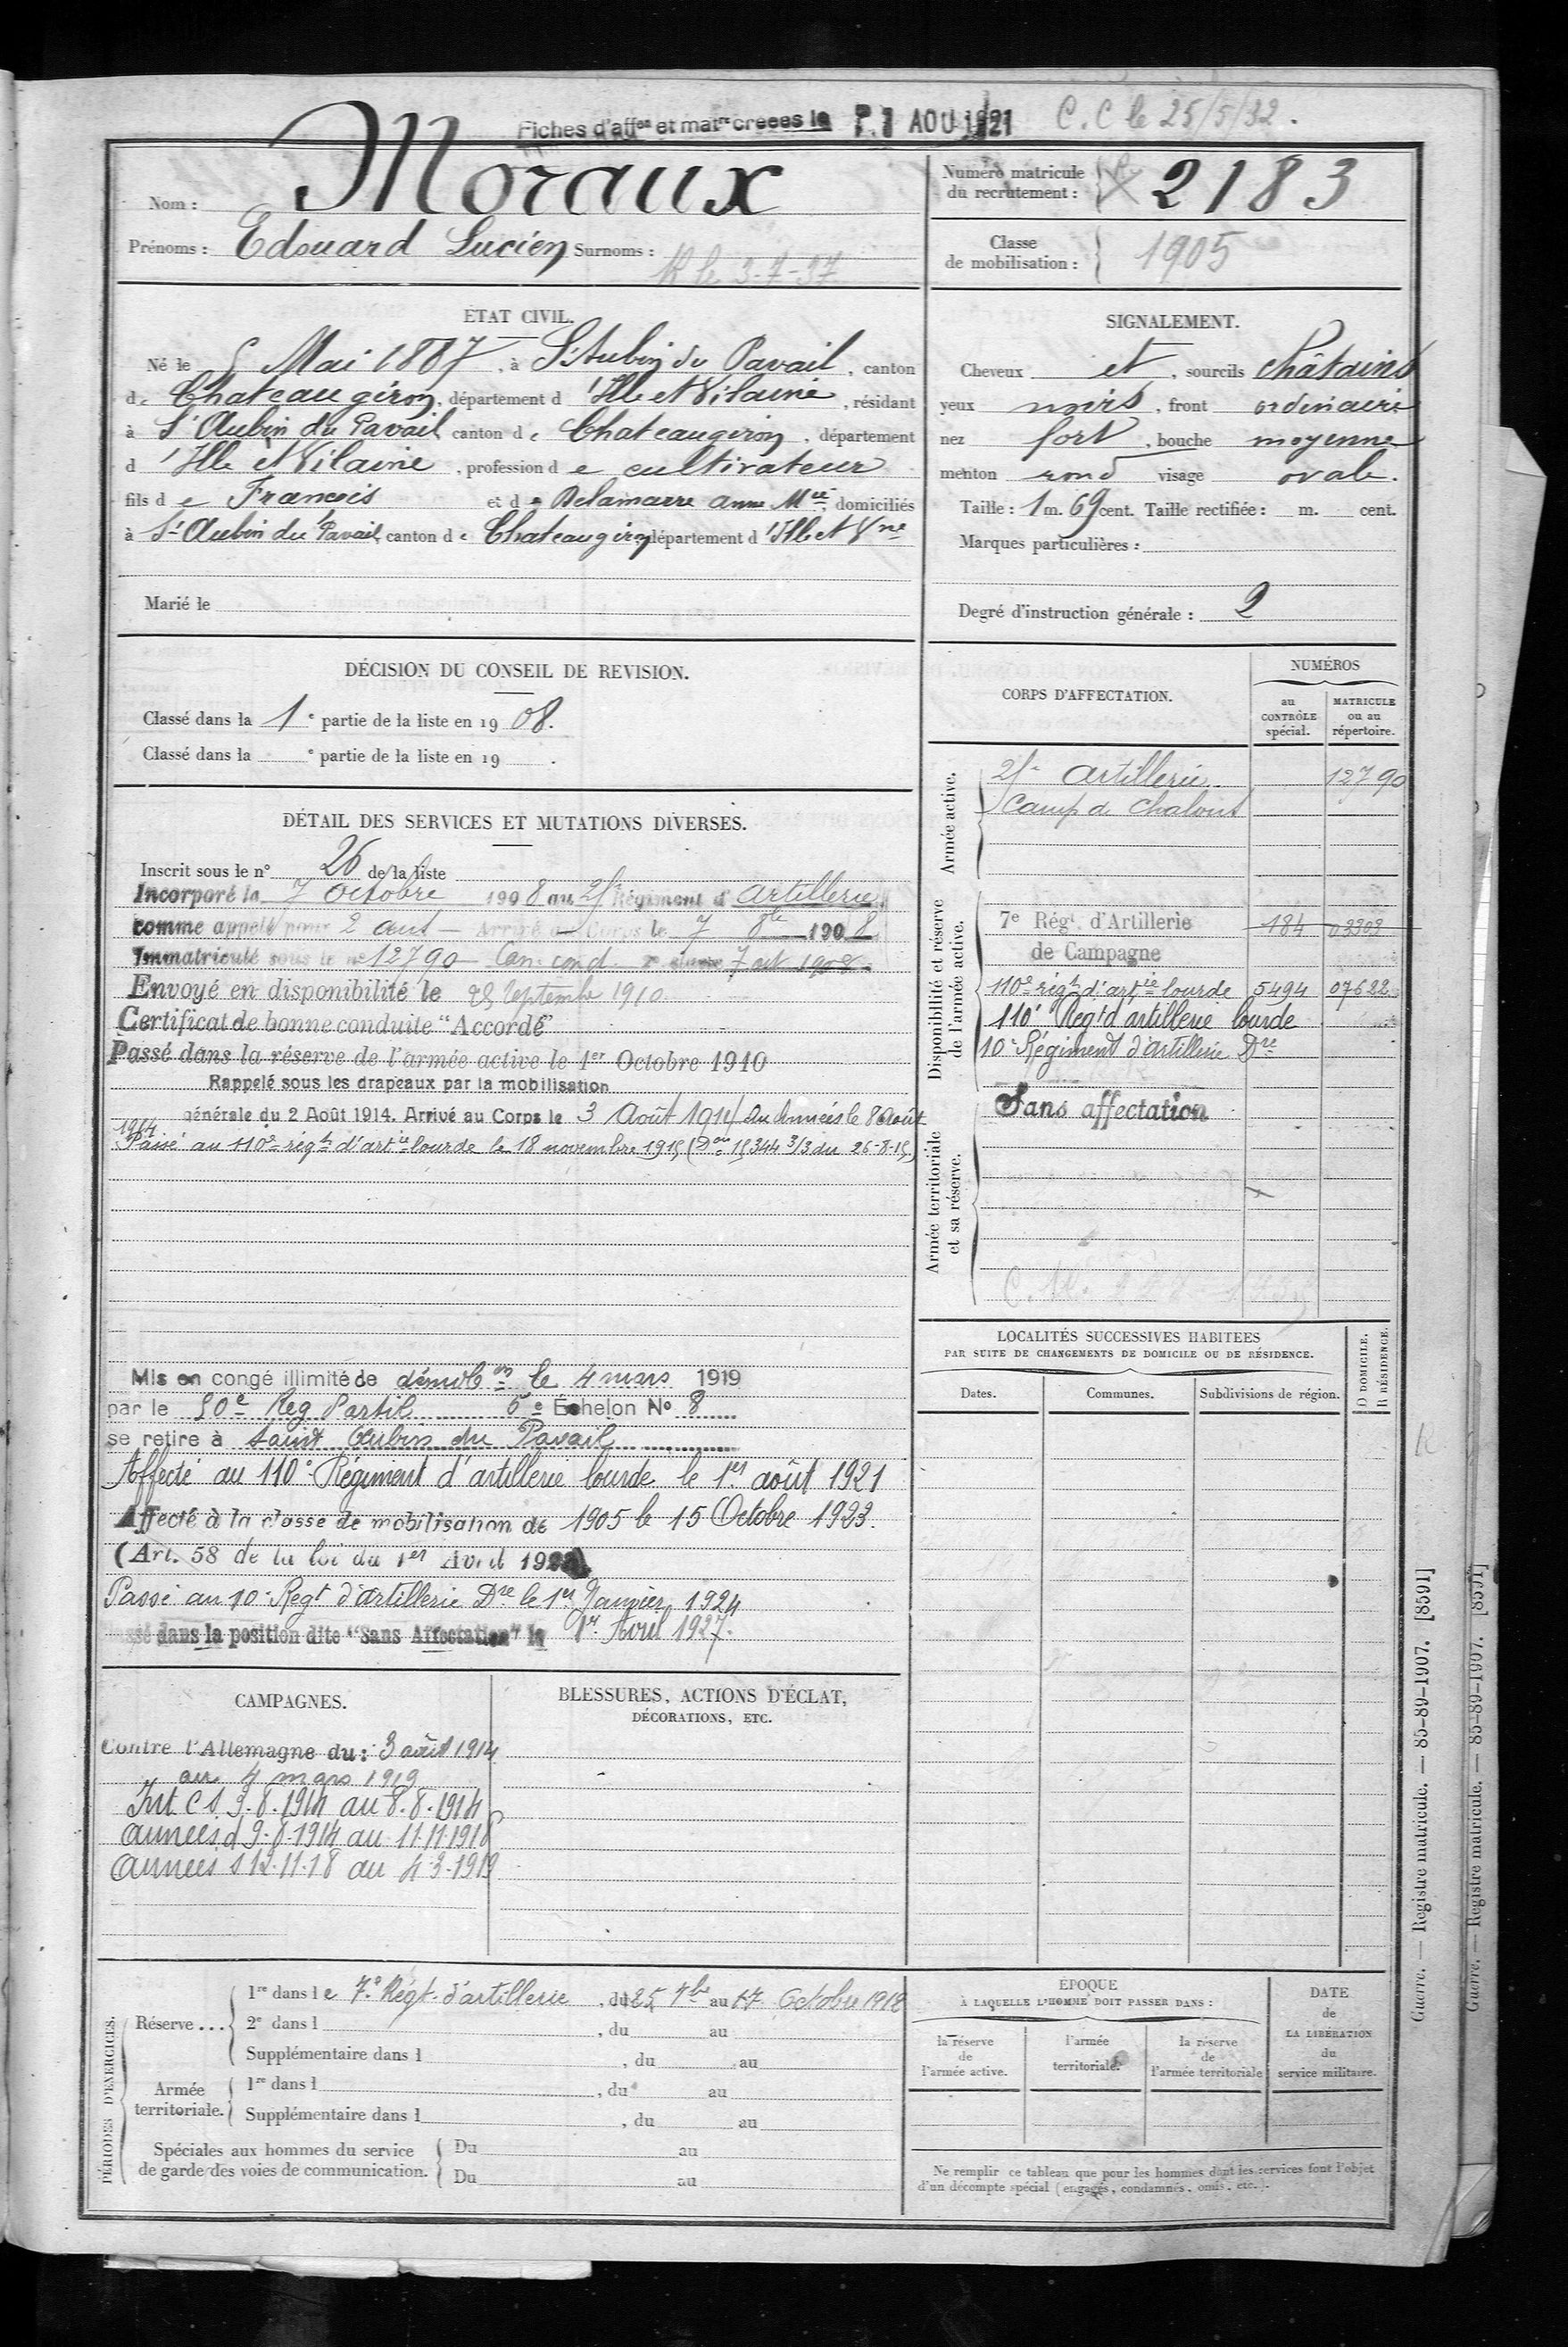 Fiches d'aff^on et mat^re creees le 21 AOU 1921
C.C le 25/5/32.
Nom : Moraux
Prénoms : Edouard Lucien Surnoms :
R le 3-7-37
Numéro matricule du recrutement : 2183
Classe de mobilisation : 1905
ÉTAT CIVIL.
Né le 5 Mai 1887, à St Aubin du Pavail, canton
de Chateaugiron, département d'Ille et Vilaine, résidant
à St Aubin du Pavail canton de Chateaugiron, département
d'Ille et Vilaine, profession de cultivateur
fils de Francois et de Delamarre anne Mie, domiciliés
à St Aubin du Pavail, canton de Chateaugiron département d'Ille et Vne
Marié le
SIGNALEMENT.
Cheveux et, sourcils châtains
yeux noirs, front ordinaire
nez fort, bouche moyenne
menton rond visage ovale.
Taille : 1 m. 69 cent. Taille rectifiée : m. cent.
Marques particulières :
Degré d'instruction générale : 2
DÉCISION DU CONSEIL DE REVISION.
Classé dans la 1e partie de la liste en 1908.
Classé dans la e partie de la liste en 19 .
DÉTAIL DES SERVICES ET MUTATIONS DIVERSES.
Inscrit sous le n° 26 de la liste
Incorporé le 7 Octobre 1908 au 25e Régiment d'Artillerie
comme appelé pour 2 ans — Arrivé au Corps le 7 8bre 1908
Immatriculé sous le no 12790 — Can. cond. 2e classe 7 oct 1908
Envoyé en disponibilité le 25 Septembre 1910
Certificat de bonne conduite "Accordé"
Passé dans la réserve de l'armée active le 1er Octobre 1910
Rappelé sous les drapeaux par la mobilisation
générale du 2 Août 1914. Arrivé au Corps le 3 Août 1914 Aux Armées le 8 Août
1914
Passé au 110e régt d'artie lourde le 18 novembre 1915 (Don 15344 3/3 du 26-8-15)
Mis en congé illimité de démobon le 4 mars 1919
par le 50e Reg d'artil 6e Échelon No 8
se retire à Saint Aubin du Pavail
Affecté au 110e Régiment d'artillerie lourde le 1er août 1921
Affecté à la classe de mobilisation de 1905 le 15 Octobre 1923.
(Art. 58 de la loi du 1er Avril 1923)
Passé au 10e Regt d'artillerie Dre le 1er Janvier 1924
Passé dans la position dite "Sans Affectation" le 1er Avril 1927.
CORPS D'AFFECTATION.
NUMÉROS
au CONTRÔLE spécial.
MATRICULE ou au répertoire.
Armée active.
25e Artillerie 12790
Camp de Chalons
Disponibilité et réserve de l'armée active.
7e Régt d'Artillerie 184 03303
de Campagne
110e régt d'artie lourde 5494 07622
110e Regt d'artillerie lourde
10e Régiment d'artillerie Dre
Sans affectation
Armée territoriale et sa réserve.
LOCALITÉS SUCCESSIVES HABITEES
PAR SUITE DE CHANGEMENTS DE DOMICILE OU DE RÉSIDENCE.
Dates. Communes. Subdivisions de région.
D DOMICILE.
R RÉSIDENCE.
CAMPAGNES.
Contre l'Allemagne du : 3 août 1914
au 4 mars 1919
Int CS 3.8.1914 au 8.8.1914
Armées d 9.8.1914 au 11.11.1918
Armées S 12.11.18 au 4.3.1919
BLESSURES, ACTIONS D'ÉCLAT,
DÉCORATIONS, ETC.
PÉRIODES D'EXERCICES.
Réserve ...
1re dans le 7e Régt d'artillerie, du 25 7bre au 17 Octobre 1912
2e dans l , du au
Supplémentaire dans l , du au
Armée territoriale.
1re dans l , du au
Supplémentaire dans l , du au
Spéciales aux hommes du service
de garde des voies de communication.
Du au
Du au
ÉPOQUE
À LAQUELLE L'HOMME DOIT PASSER DANS :
la réserve de l'armée active.
l'armée territoriale.
la réserve de l'armée territoriale
DATE de LA LIBÉRATION du service militaire.
Ne remplir ce tableau que pour les hommes dont les services font l'objet
d'un décompte spécial (engagés, condamnés, omis, etc.).
Guerre. — Registre matricule. — 85-89-1907. [8591]
Guerre. — Registre matricule. — 85-89-1907. [8591]